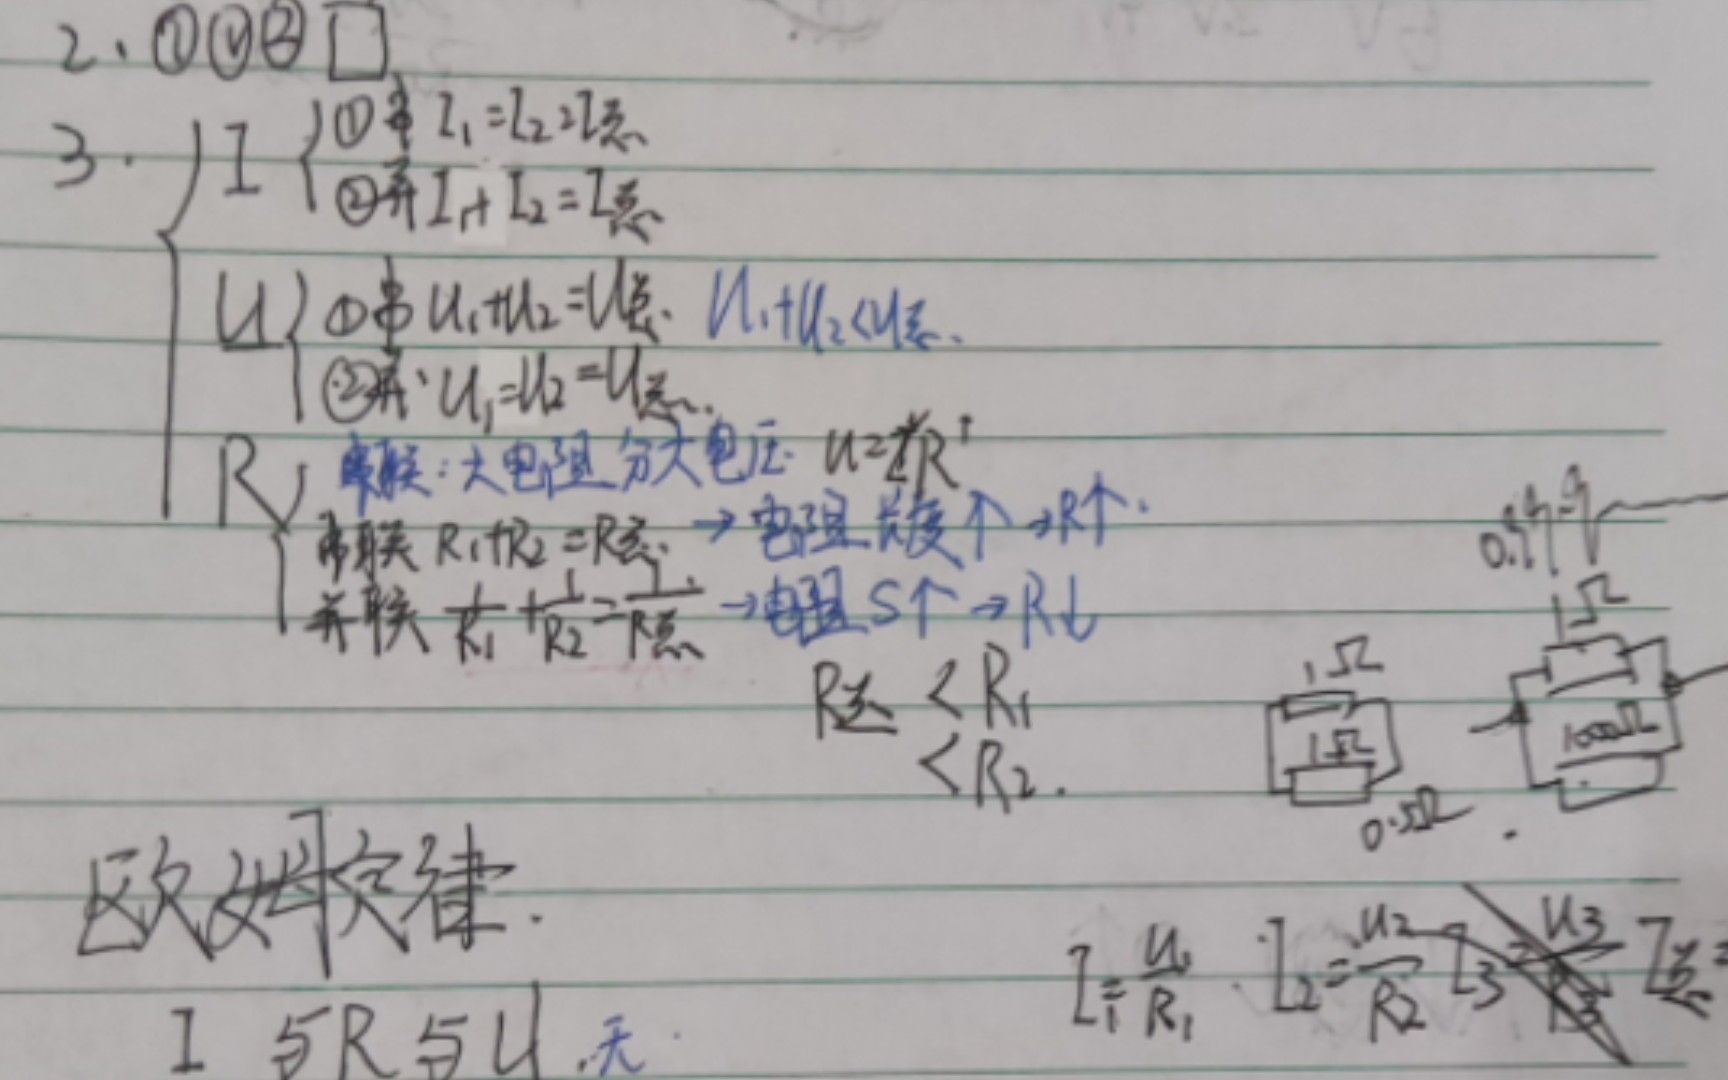 2、①②
3. I ①串 I₁=I₂=I总
②并 I₁+I₂=I总
U ①串 U₁+U₂=U总. U₁+U₂<U总.
②并、U₁=U₂=U总.
R 串联:大电阻分大电压. U= R↑
串联 R₁+R₂=R总. →电阻长度↑→R↑.
并联 1/R₁+1/R₂=1/R总 →电阻S↑→R↓
R总 <R₁
<R₂.
0.99
1Ω
1000Ω
1Ω
1Ω
0.5Ω
欧姆定律.
I₁=U₁/R₁ . I₂=U₂/R₂ I₃=U₃/R₃ I总=
I 与R与U.无.